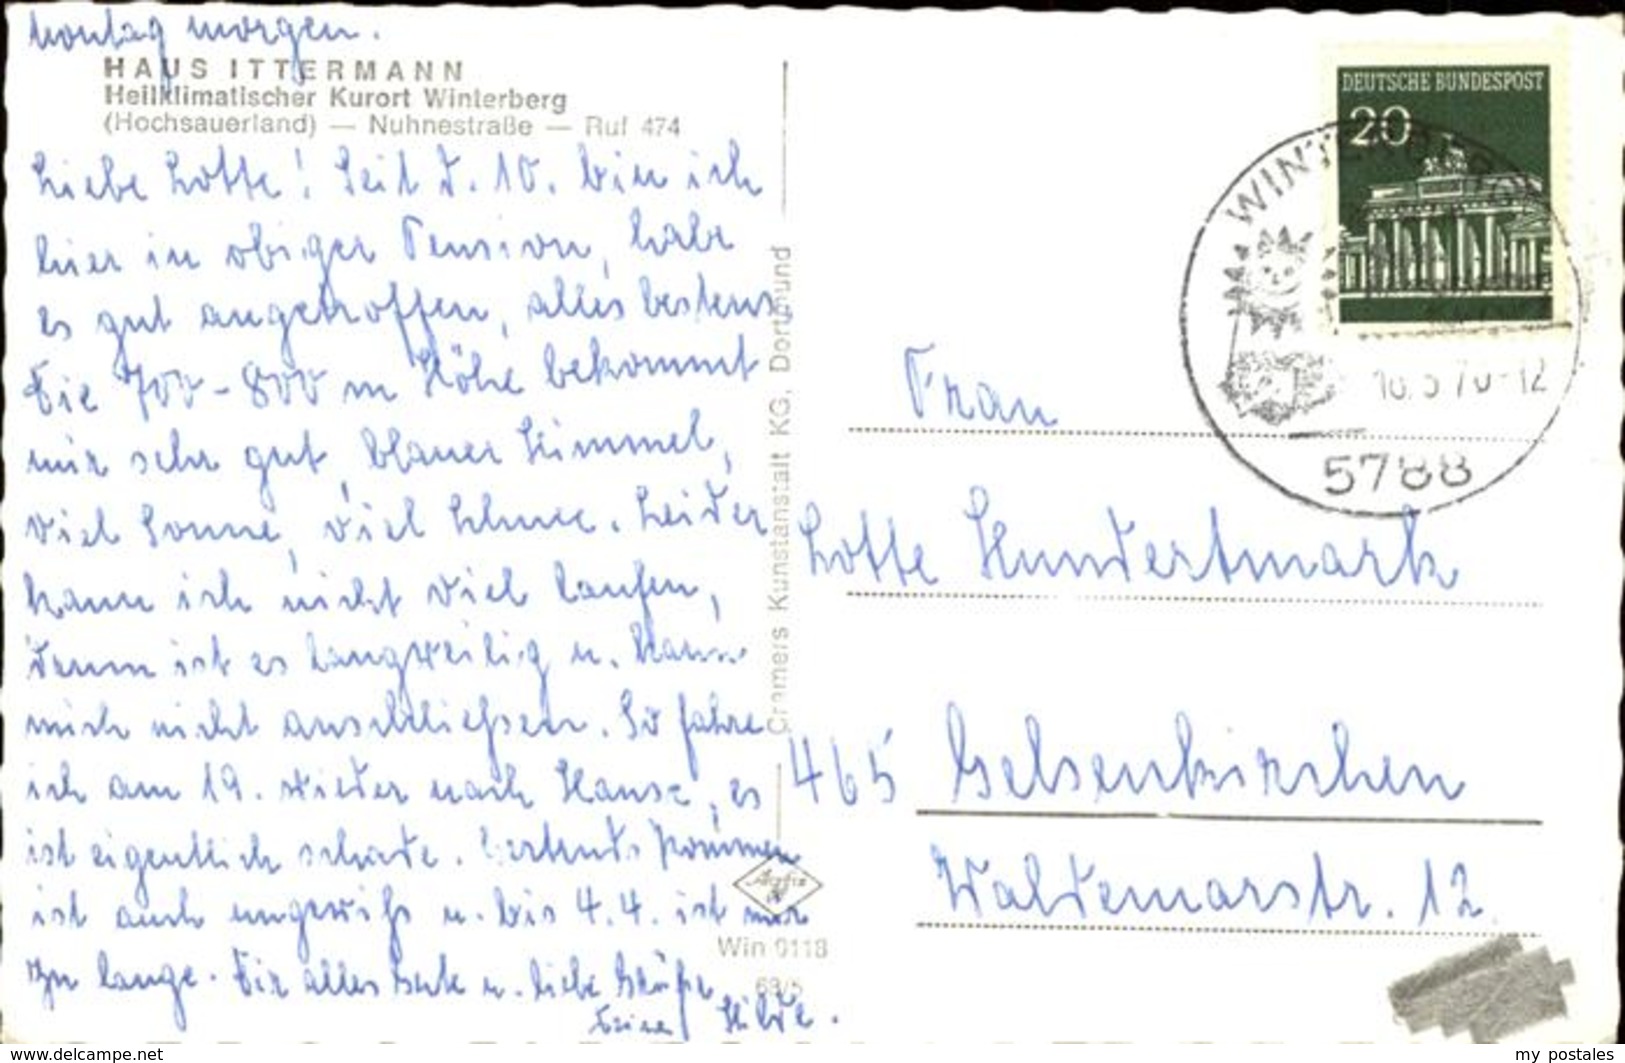 Montag morgen.
HAUS ITTERMANN
Heilklimatischer Kurort Winterberg
(Hochsauerland) — Nuhnestraße — Ruf 474
Liebe Lotte! Seit d. 10. bin ich
hier in obiger Pension, habe
es gut angetroffen, alles bestens.
Die 700-800 m Höhe bekommt
mir sehr gut, blauer Himmel,
viel Sonne, viel Schnee. Leider
kann ich nicht viel laufen,
denn ist es langweilig u. kann
mich nicht anschließen. So fahre
ich am 19. wieder nach Hause, es
ist eigentlich schade. kommen
ist auch ungewiß u. bis 4.4. ist mir
zu lange. Dir alles Gute u. liebe Grüße
Deine Hilde.
Cramers Kunstanstalt KG, Dortmund
Agfa
Win 9118
68/5
DEUTSCHE BUNDESPOST
20
WINTERBERG
16.3.70-12
5788
Frau
Lotte Hundertmark
465 Gelsenkirchen
Waldemarstr. 12
www.delcampe.net
my_postales